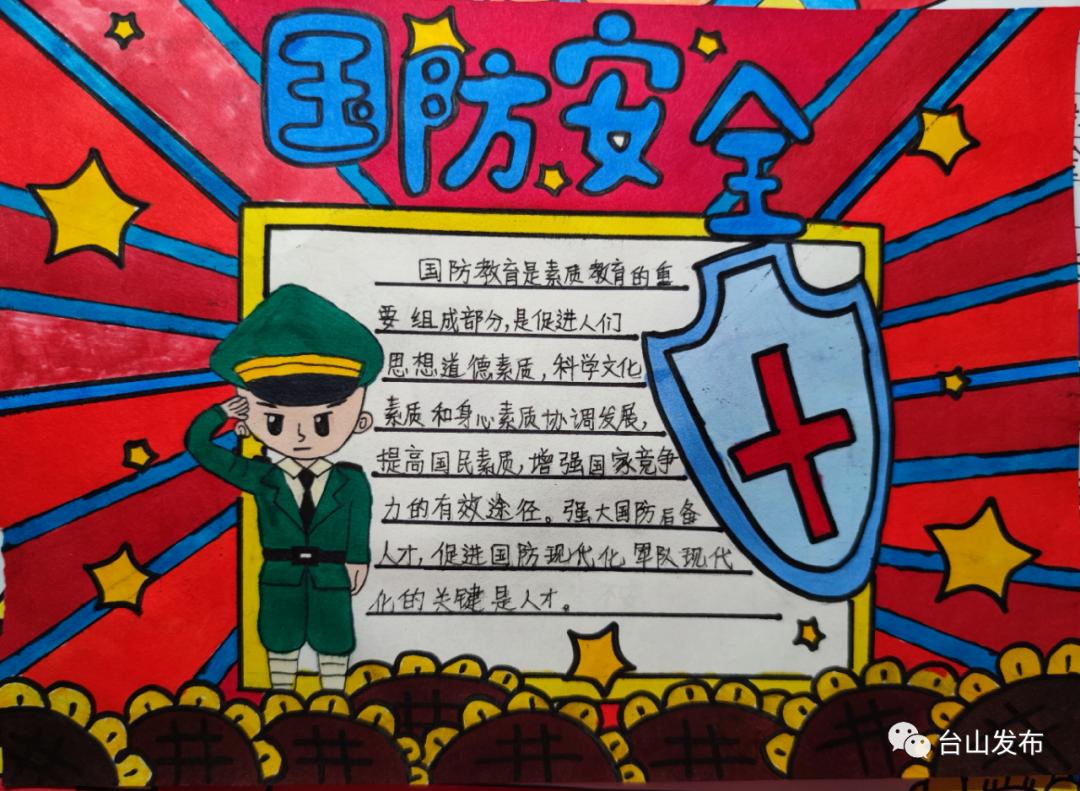 国防安全
国防教育是素质教育的重
要组成部分,是促进人们
思想道德素质,科学文化
素质和身心素质协调发展,
提高国民素质,增强国家竞争
力的有效途径。强大国防后备
人才,促进国防现代化军队现代
化的关键是人才。
台山发布